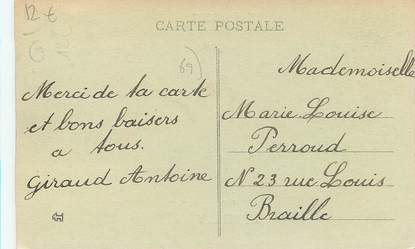 12 €
CARTE POSTALE
69
Merci de ta carte
et bons baisers
a tous.
Giraud Antoine
Mademoiselle
Marie Louise
Perroud
N 23 rue Louis
Braille